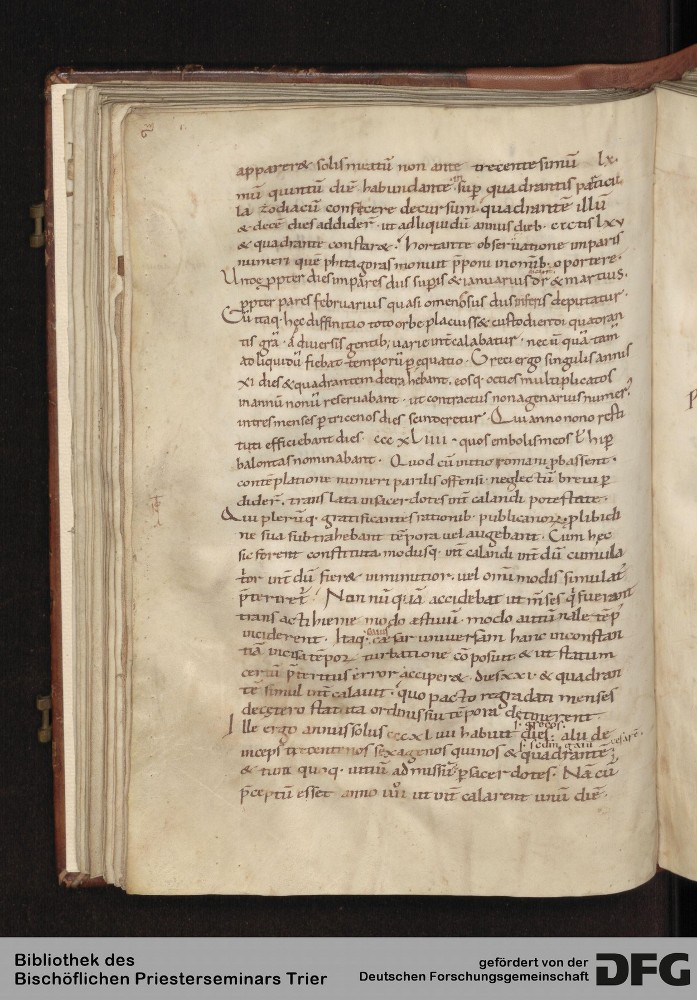 apparer& solis meatū non ante trecentesimū lx.
mū quintū diē habundante in sup quadrantis particu
la zodiacū conficere decursum. quadrantē illū
& decē dies addider̄. ut ad liquidū annus dieb. ccctis lxv
& quadrante constar&. hortante observatione imparis
numeri quē phitagoras monuit p̄poni in omīb. oportere.
Unde ppter dies impares diis supis & ianuarius dicar̄ & martius.
ppter pares februarius quasi omenosus diis inferis deputatur.
Cū itaq. hęc diffinitio toto orbe placuiss& custodiendi quadran
tis gr̄a. a diversis gentib; varie int̄calabatur. nec ū quā tam̄
ad liquidū fiebat temporū pequatio. Greci ergo singulis annis
xi dies & quadrantem detrahebant. eosq. octies multiplicatos
in annū nonū reservabant. ut contractus nonagenarius numer'
in tres menses p tricenos dies scinderetur. Qui anno nono resti
tuti efficiebant dies. ccc xl iiii. quos embolismeos t̄ hip
balontas nominabant. Quod cū initio romani pbassent.
contēplatione numeri parilis offensi. neglectū brevi p
dider̄. translata in sacerdotes int̄ calandi potestate.
Qui plerūq. gratificantes rationib. publicanor̄. p libidi
ne sua subtrahebant tēpora vel augebant. Cum hęc
sic forent constituta modusq. int̄ calandi int̄ dū cumula
tior int̄ dū fier& inminutior. vel omīn modis simulat'
p̄teriret̄. Non nū quā accidebat ut m̄ses q̄ fuerant
trans acti hieme modo ęstivū. modo autūnale tēp'
inciderent. Itaq. gaius cęsar universam hanc inconstan
tiā incisa tēpor̄ turbatione cōposuit. & ut statum
certū p̄teritus error acciper&. dies xxi & quadran
tē simul int̄calavit. quo pacto regradati menses
de cętero statuta ordinis sui tēpora detinerent
Ille ergo annus solus cccxl iiii habuit dies. alii de
inceps trecentenos sexagenos quinos & quadrante;
& tunc quoq. vitiū admissū p sacerdotes. Nā cū
p̄ceptū esset anno iiii ut int̄ calarent unū diē.
Bibliothek des
Bischöflichen Priesterseminars Trier
gefördert von der
Deutschen Forschungsgemeinschaft
DFG